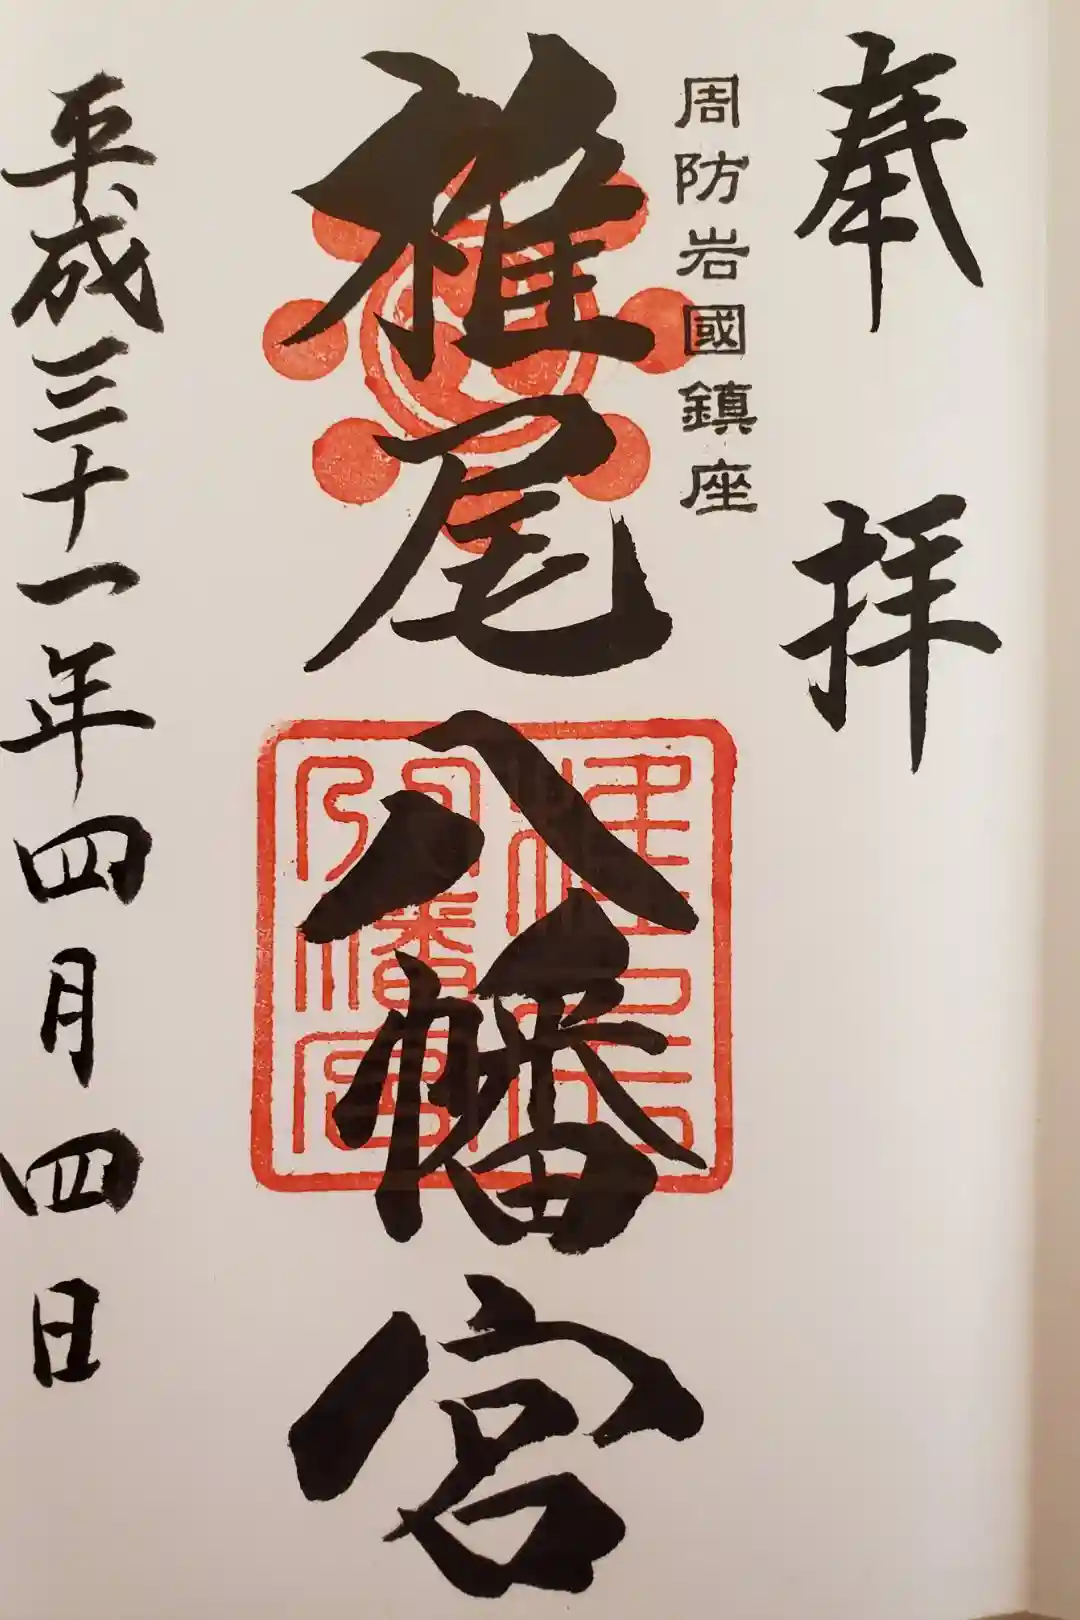 奉拝
周防岩國鎮座
椎尾八幡宮
平成三十一年四月四日